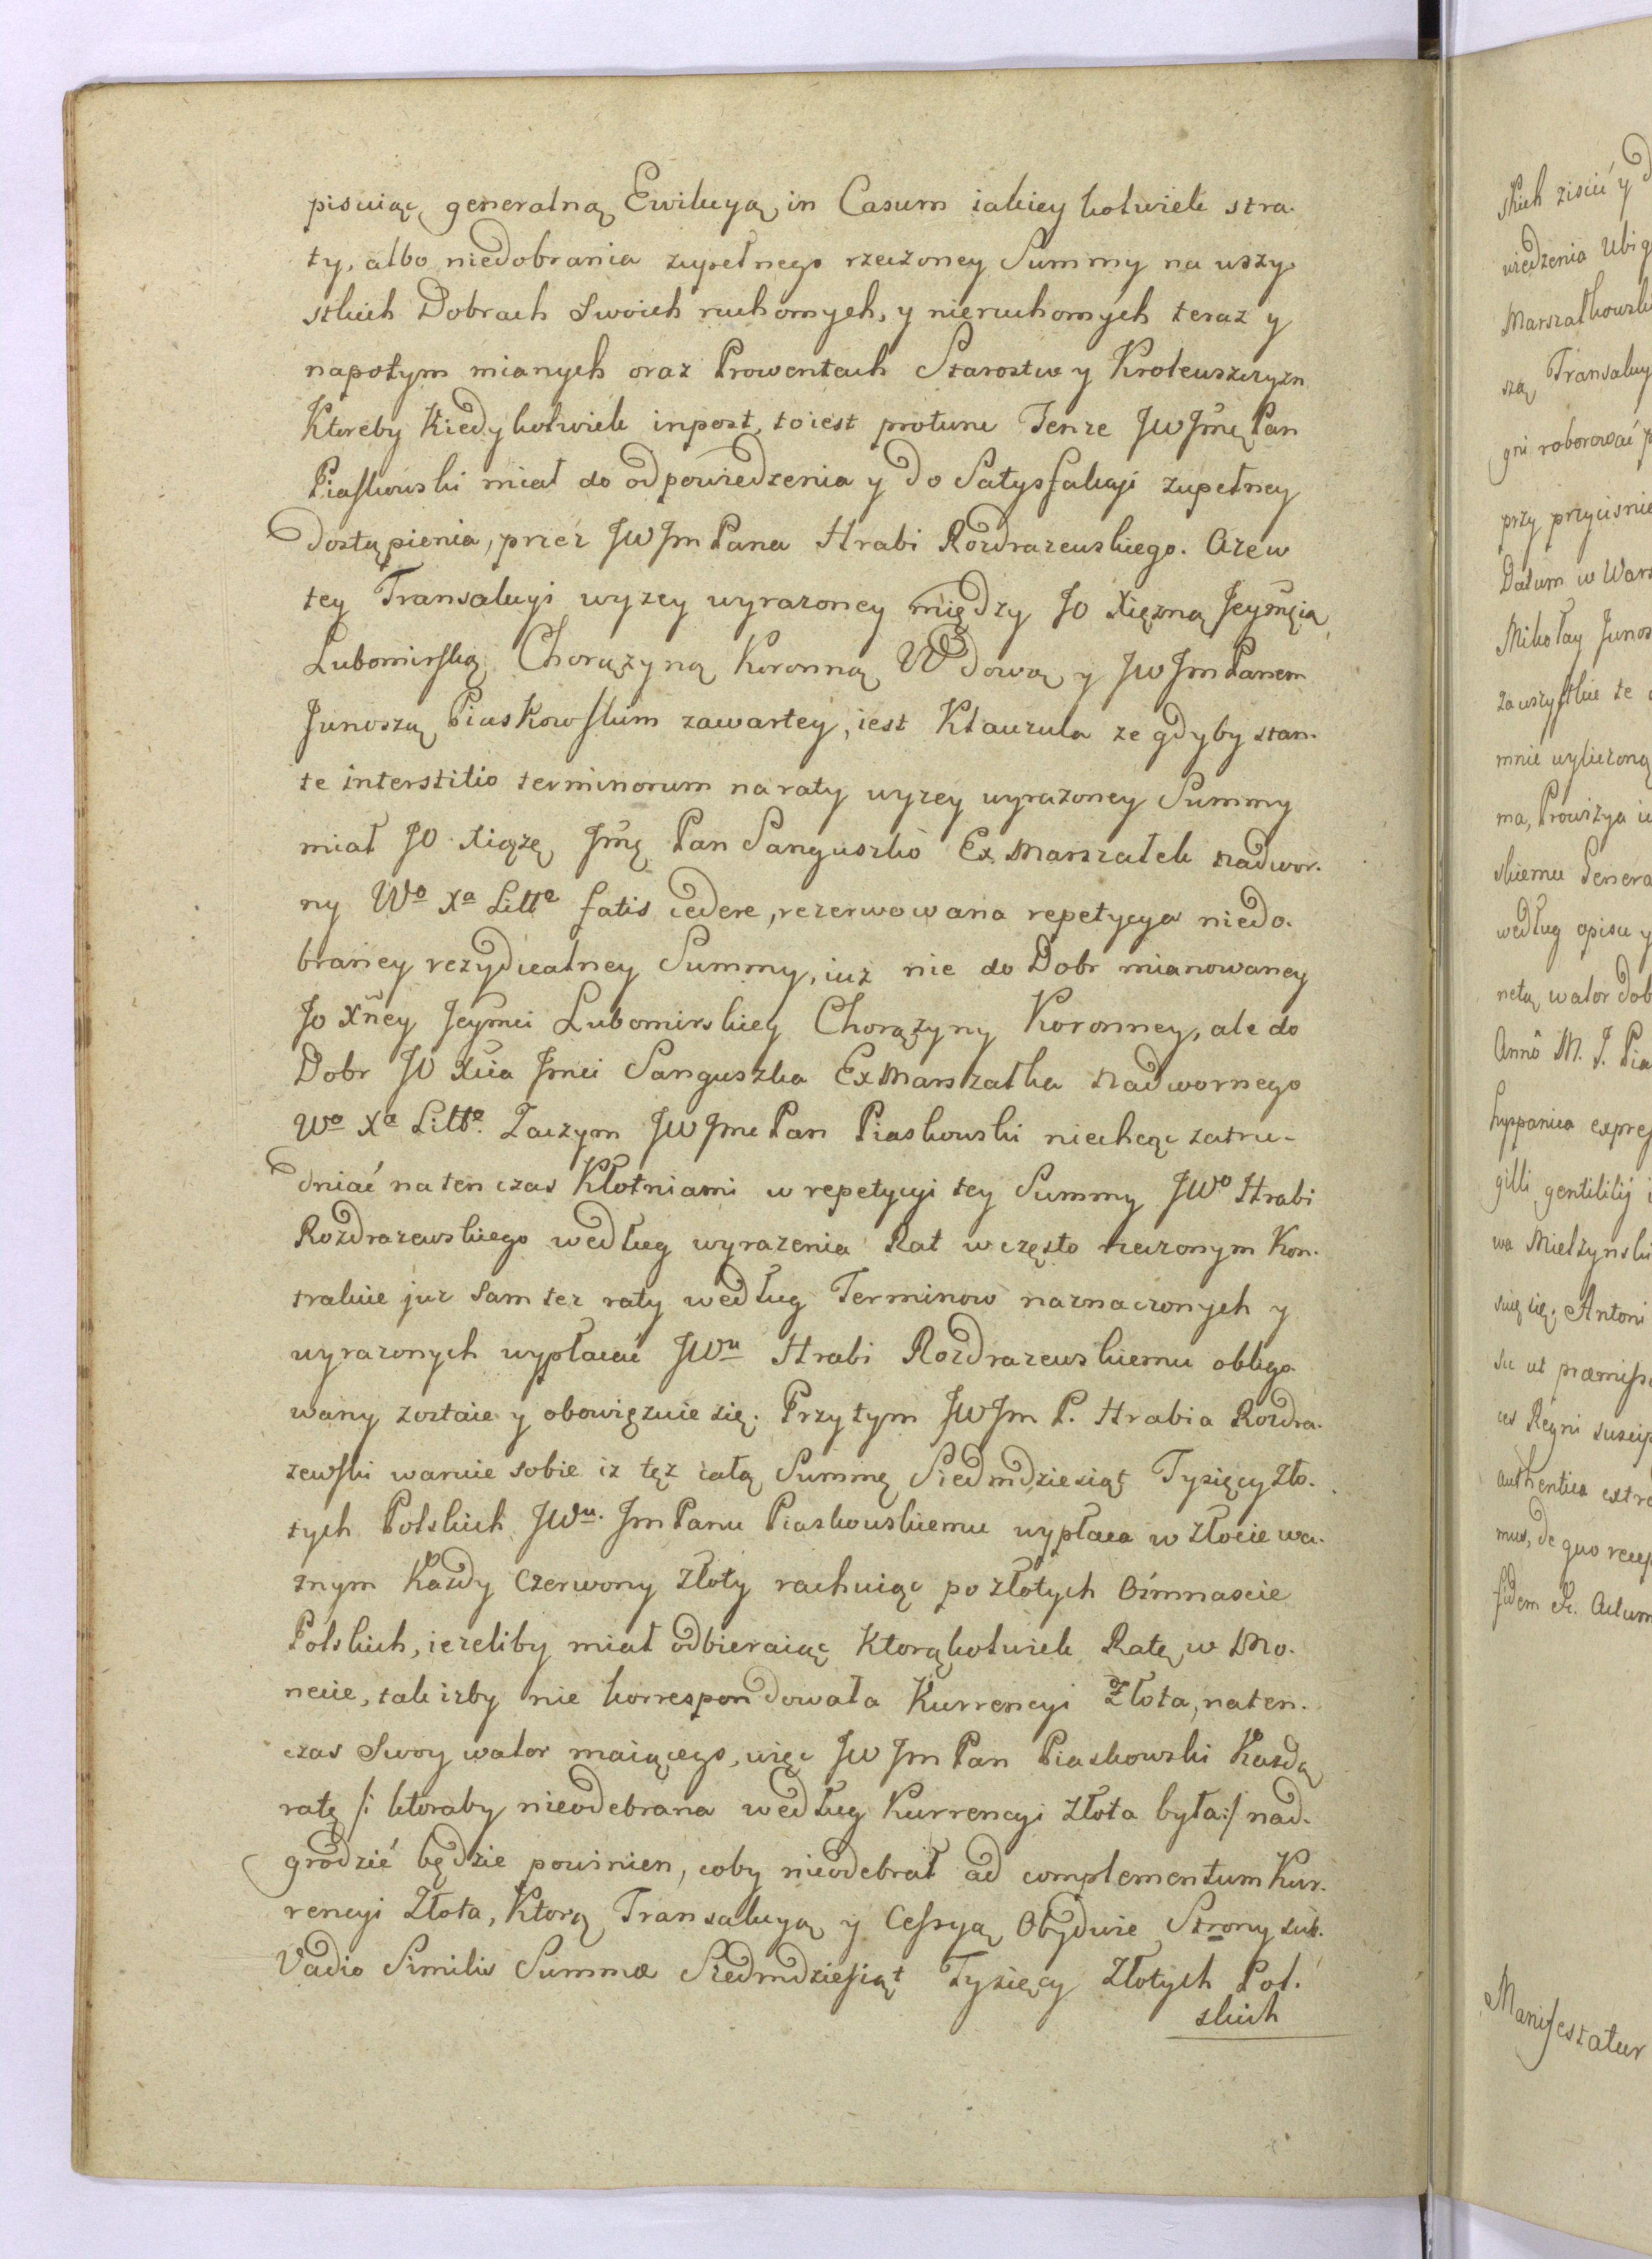 pisuiąc generalną Ewikcyą in Casum iakiey kolwiek stra-
ty, albo niedobrania zupełnego rzeczoney Summy na wszy-
stkich Dobrach Swoich ruchomych, y nieruchomych teraz y
napotym mianych oraz Prowentach Starostw y Krolewszczyzn
Ktoreby Kiedykolwiek inpost, toiest protunc Tenze JW Jmę Pan
Piaskowski miał do odpowiedzenia y do Satysfakcyi zupełney
dostąpienia, przez JW Jm Pana Hrabi Rozdrazewskiego. A ze w
tey Transakcyi wyzey wyrazoney między JO Xięzną Jeymęią
Lubomirską Chorązyną Koronną Wdową y JW Jm Panem
Junoszą Piaskowskim zawartey, iest Klauzula ze gdyby stan-
te interstitio terminorum na raty wyzey wyrazoney Summy
miał JO Xiązę Jmę Pan Sanguszko Ex Marszałek Nadwor-
ny Wo Xa Litto fatis cedere, rezerwowana repetycya niedo-
braney rezydualney Summy, iuz nie do Dobr mianowaney
Jo Xney Jeymci Lubomirskiey Chorązyny Koronney, ale do
Dobr JO Xcia Jmci Sanguszka Ex Marszałka Nadwornego
Wo Xa Litto. Zaczym JW Jmc Pan Piaskowski niechcąc zatru-
dniać na ten czas Kłotniami w repetycyi tey Summy JWo Hrabi
Rozdrazewskiego według wyrazenia Rat w często rzeczonym Kon-
trakcie juz Sam tez raty według Terminow naznaczonych y
wyrazonych wypłacać JWu Hrabi Rozdrazewskiemu obligo-
wany zostaie y obowięzuie się. Przytym JW Jm P. Hrabia Rozdra-
zewski waruie sobie iz tęz całą Summę Siedmdziesiąt Tysięcy Zło-
tych Polskich JWu. Jm Panu Piaskowskiemu wypłaca w złocie wa-
znym Kazdy Czerwony Złoty rachuiąc po złotych Osmnascie
Polskich, iezeliby miał odbieraiąc Ktorąkolwiek Ratę w Mo-
necie, tak izby nie korrespondowała Kurrencyi Złota, naten-
czas Swoy walor maiącego, więc JW Jm Pan Piaskowski Kazdą
ratę /: ktoraby nieodebrana według Kurrencyi Złota była :/ nad-
grodzić będzie powinien, coby nieodebrał ad complementum Kur-
rencyi Złota, Ktorą Transakcyą y Cessyą Obydwie Strony sub
Vadio Similis Summæ Siedmdziesiąt Tysięcy Złotych Pol-
skich
skich ziścić y
wiedzenia Ubi
Marszałkowsk
szą Transakcy
gni roborować
przy przycisnie
Datum w Wars
Mikołay Junos
za wszystkie te
mnie wyliczoną
ma, Prowizya
skiemu Genera
według opisu y
netą walor dob
Anno M. J. Pia
hyppanica expres
gilli gentilitij
wa Mielzynski
Antoni
su ut præmiss
ces Regni suscip
authentica extra
mus, de quo recep
fidem &c. Actum
Manifestatur